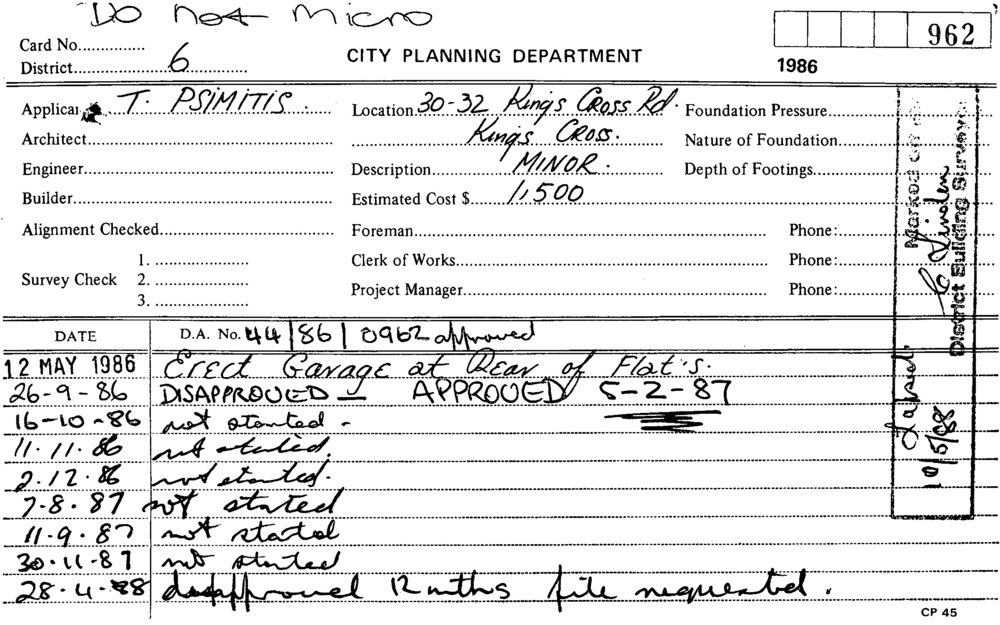 Do not micro
Card No...............
District 6
CITY PLANNING DEPARTMENT
962
1986
Applica T. PSIMITIS
Location 30-32 Kings Cross Rd.
Foundation Pressure
Architect
Kings Cross.
Nature of Foundation
Engineer
Description MINOR.
Depth of Footings
Builder
Estimated Cost $ 1,500
Alignment Checked
Foreman
Phone:
1.
Clerk of Works
Phone:
Survey Check 2.
Project Manager
Phone:
3.
Marked off
District Building Surveyor
Lapsed.
10/5/88
DATE
D.A. No. 44/86/0962 approved
12 MAY 1986 Erect Garage at Rear of Flat's.
26-9-86 DISAPPROVED — APPROVED 5-2-87
16-10-86 not started -
11.11.86 not started.
2.12.86 not started.
7-8.87 not started
11.9.87 not started
30.11.87 not started
28.4.88 12 mths file requested.
CP 45